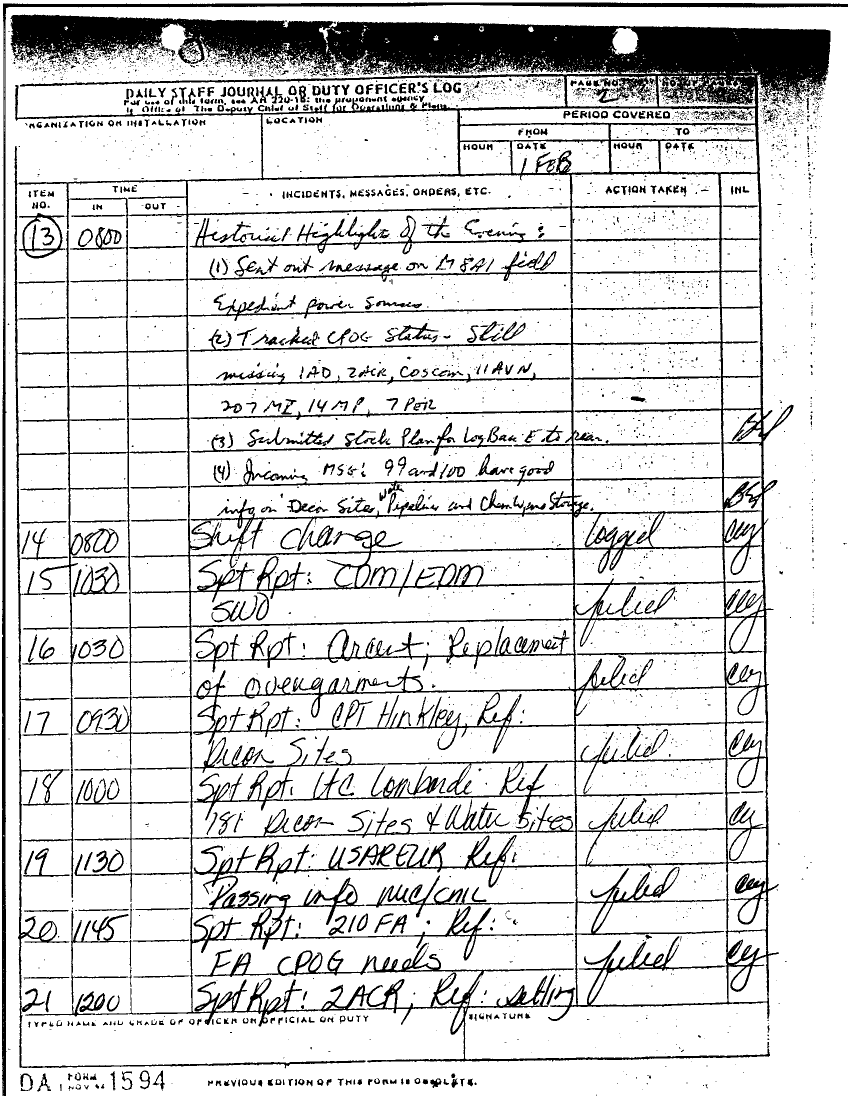 DAILY STAFF JOURNAL OR DUTY OFFICER'S LOG
For use of this form, see AR 220-15; the proponent agency
is Office of The Deputy Chief of Staff for Operations & Plans
PAGE NO.
2
ORGANIZATION OR INSTALLATION
LOCATION
PERIOD COVERED
FROM
TO
HOUR
DATE
HOUR
DATE
1 FEB
ITEM NO.
TIME
IN
OUT
INCIDENTS, MESSAGES, ORDERS, ETC.
ACTION TAKEN
INL
13 0800 Historical Highlight of the Evening:
(1) Sent out message on M8A1 field
Expedient power sources
(2) Tracked CPOG Status - Still
missing 1AD, 2ACR, COSCOM, 11 AVN,
207 MI, 14 MP, 7 PER
(3) Submitted Stock Plan for Log Base E to rear.
(4) Incoming MSG's 99 and 100 have good
info on Decon Sites, Water Pipelines and Storage.
14 0800 Shift change logged
15 1030 Spt Rpt: CDM/EDM
SWO
16 1030 Spt Rpt: Arcent; Replacement
of overgarments.
17 0930 Spt Rpt: CPT Hinkley, Ref:
Decon Sites
18 1000 Spt Rpt: LTC Lombardi Ref
Decon Sites & Water Sites
19 1130 Spt Rpt: USAREUR Ref:
Passing info nuc/cml
20 1145 Spt Rpt: 210 FA; Ref:
FA CPOG needs
21 1200 Spt Rpt: 2ACR; Ref:
TYPED NAME AND GRADE OF OFFICER OR OFFICIAL ON DUTY
SIGNATURE
DA FORM 1594
PREVIOUS EDITION OF THIS FORM IS OBSOLETE.